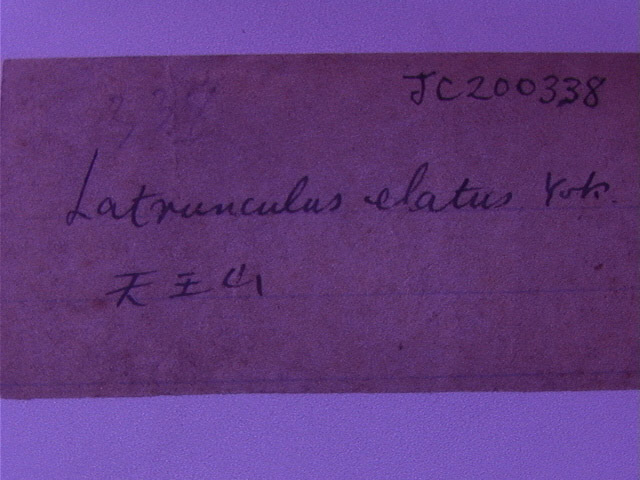 JC200338
Latrunculus elatus Yok.
天王山